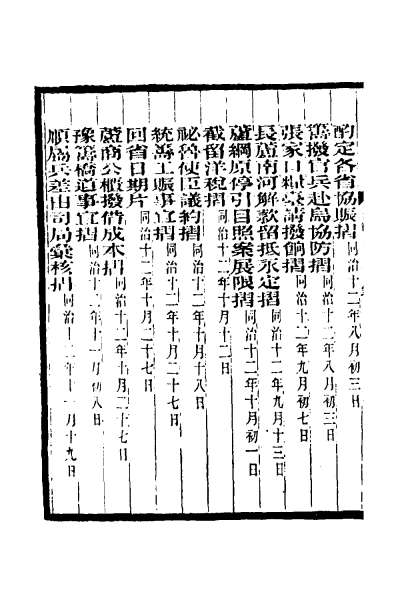 酌定各省協賑摺同治十二年八月初三日
籌撥官兵赴烏協防摺同治十二年八月初三日
張家口糧臺請撥餉摺同治十二年九月初七日
長蘆南河解款留抵永定摺同治十二年九月十三日
蘆綱原停引目照案展限摺同治十二年十月初一日
截留洋稅摺同治十二年十月十二日
祕魯使臣議約摺同治十二年十月十八日
統籌工賑事宜摺同治十二年十月二十七日
回省日期片同治十二年十月二十七日
蘆商公櫃撥借成本摺同治十二年十月二十七日
豫籌橋道事宜摺同治十二年十一月初八日
順屬兵差由司局彙核摺同治十二年十一月十九日